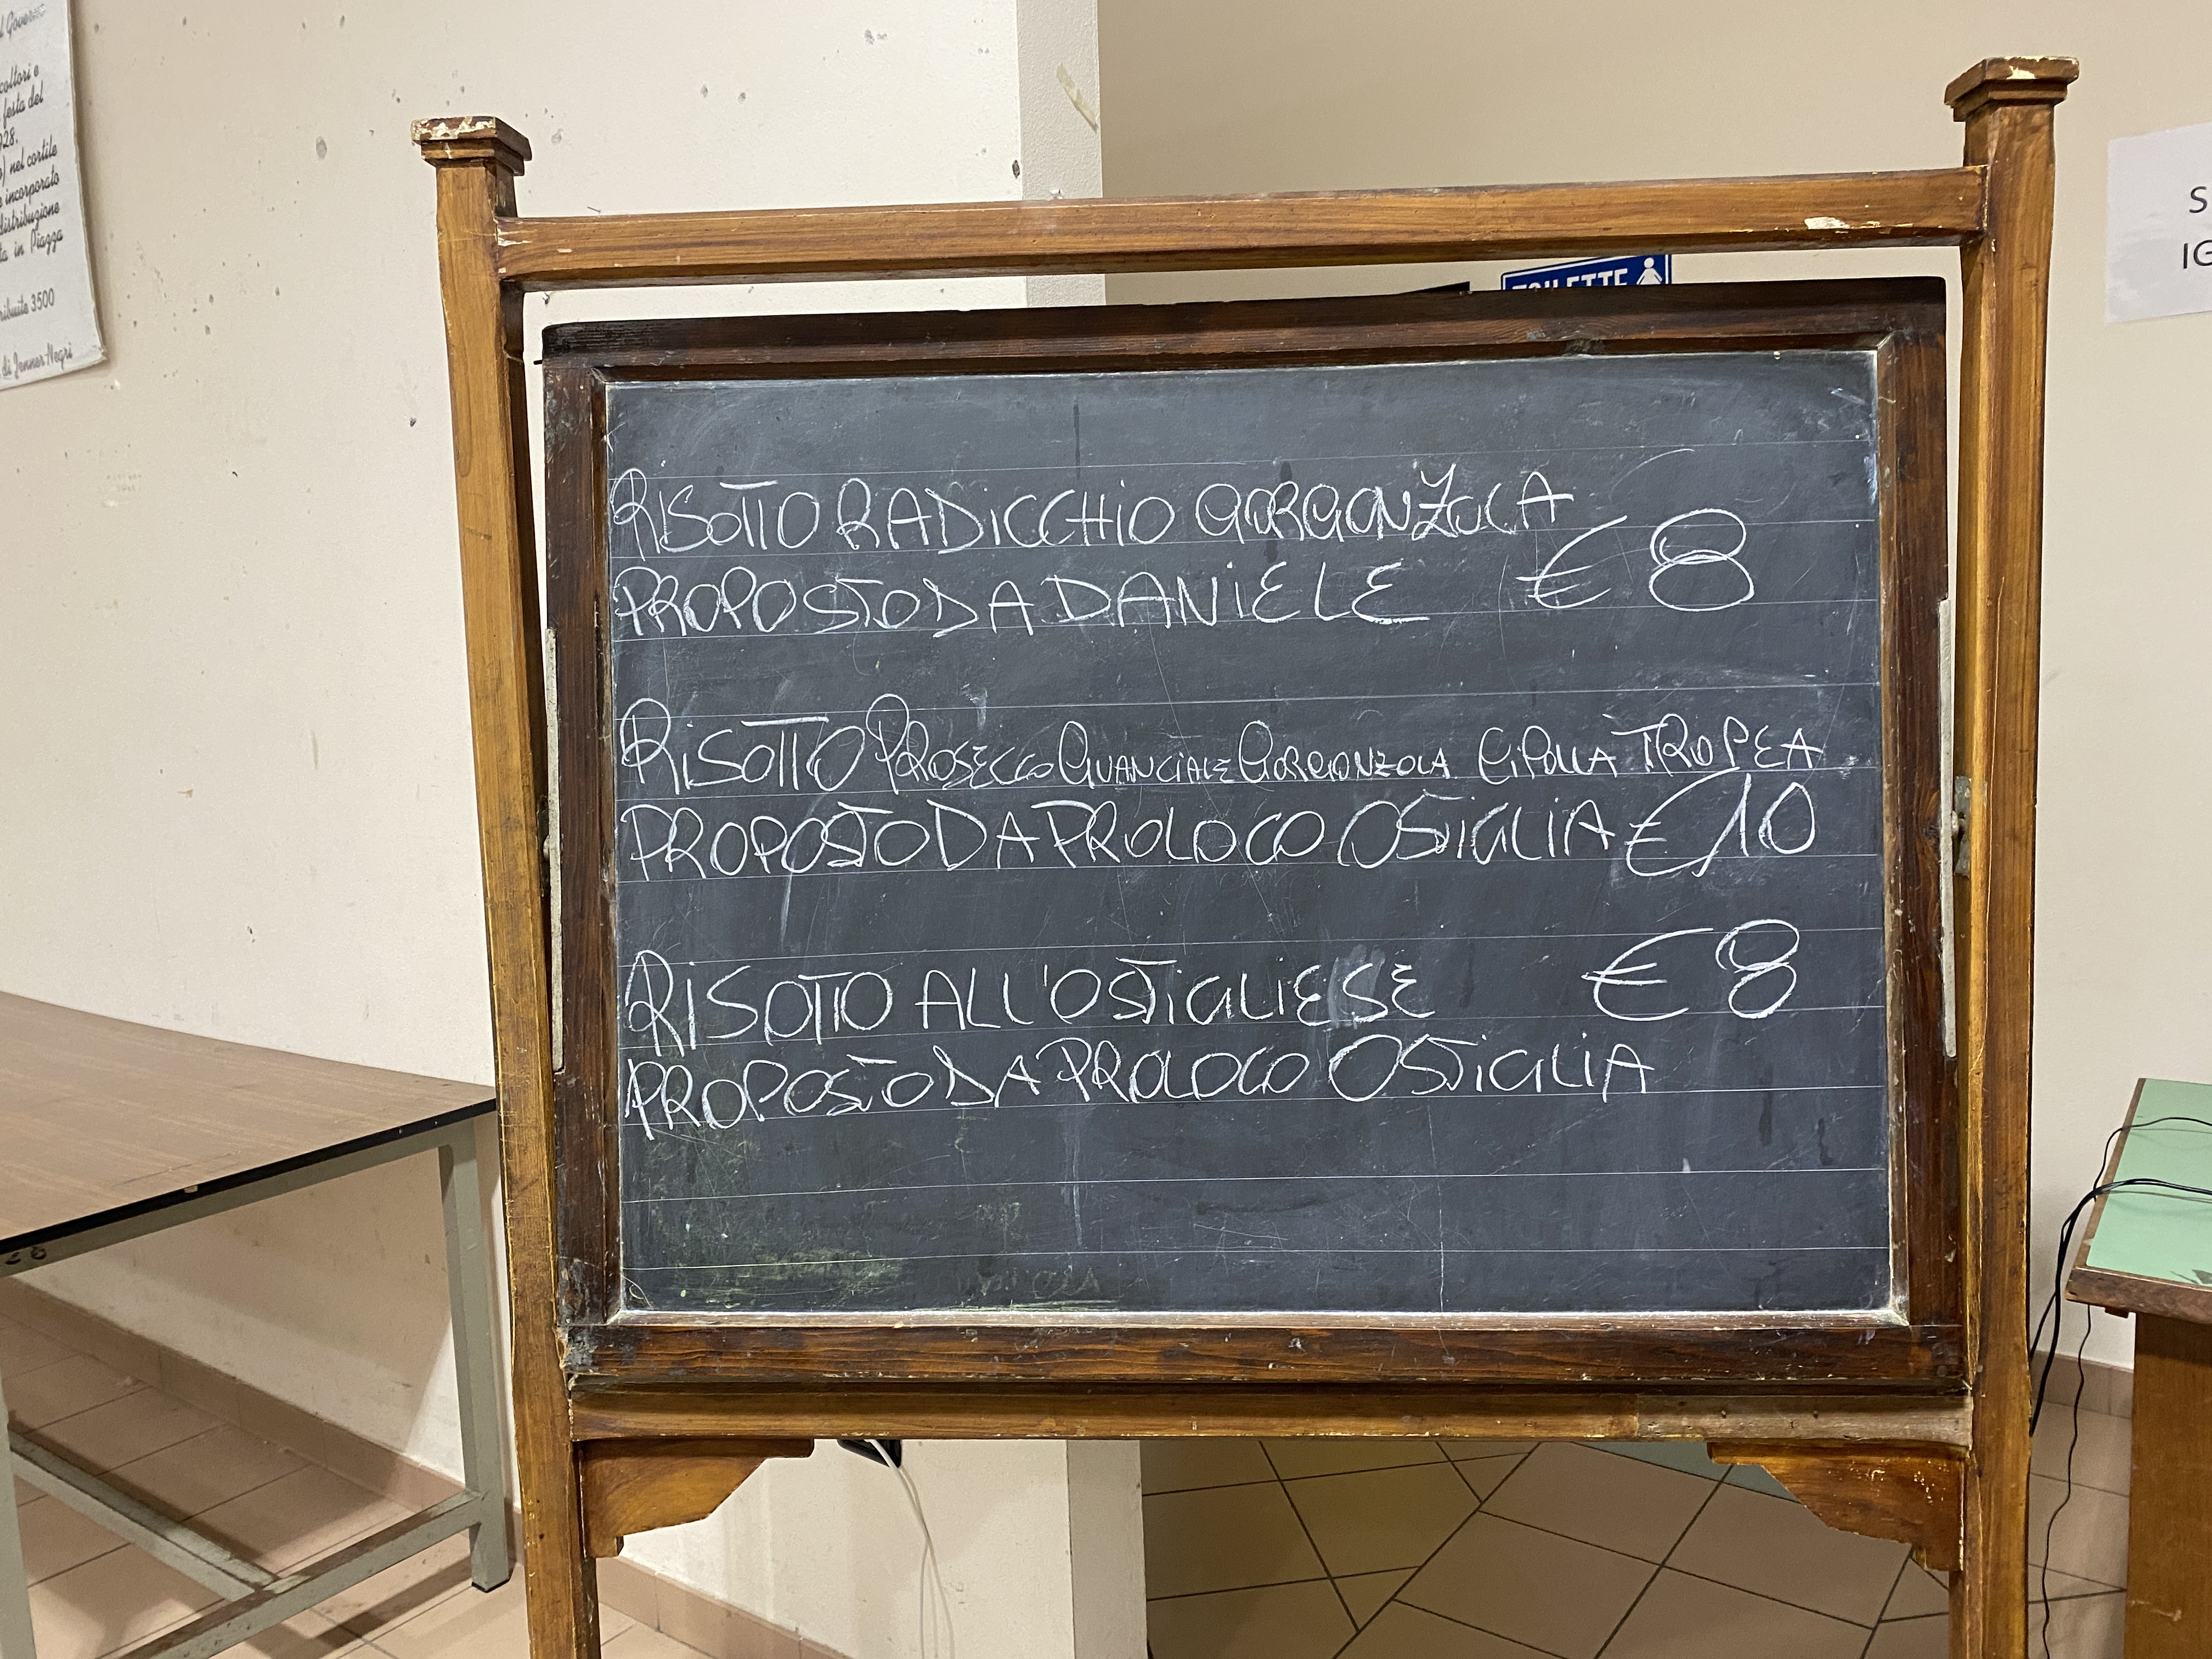 l Governo
coltori e
festa del
928.
) nel cortile
e incorporato
distribuzione
ta in Piazza
ribuite 3500
di Jenner Negri
TOILETTE
S
IG
RISOTTO RADICCHIO GORGONZOLA
PROPOSTO DA DANIELE €8
RISOTTO PROSECCO GUANCIALE GORGONZOLA CIPOLLA TROPEA
PROPOSTO DA PROLOCO OSTIGLIA €10
RISOTTO ALL'OSTIGLIESE €8
PROPOSTO DA PROLOCO OSTIGLIA